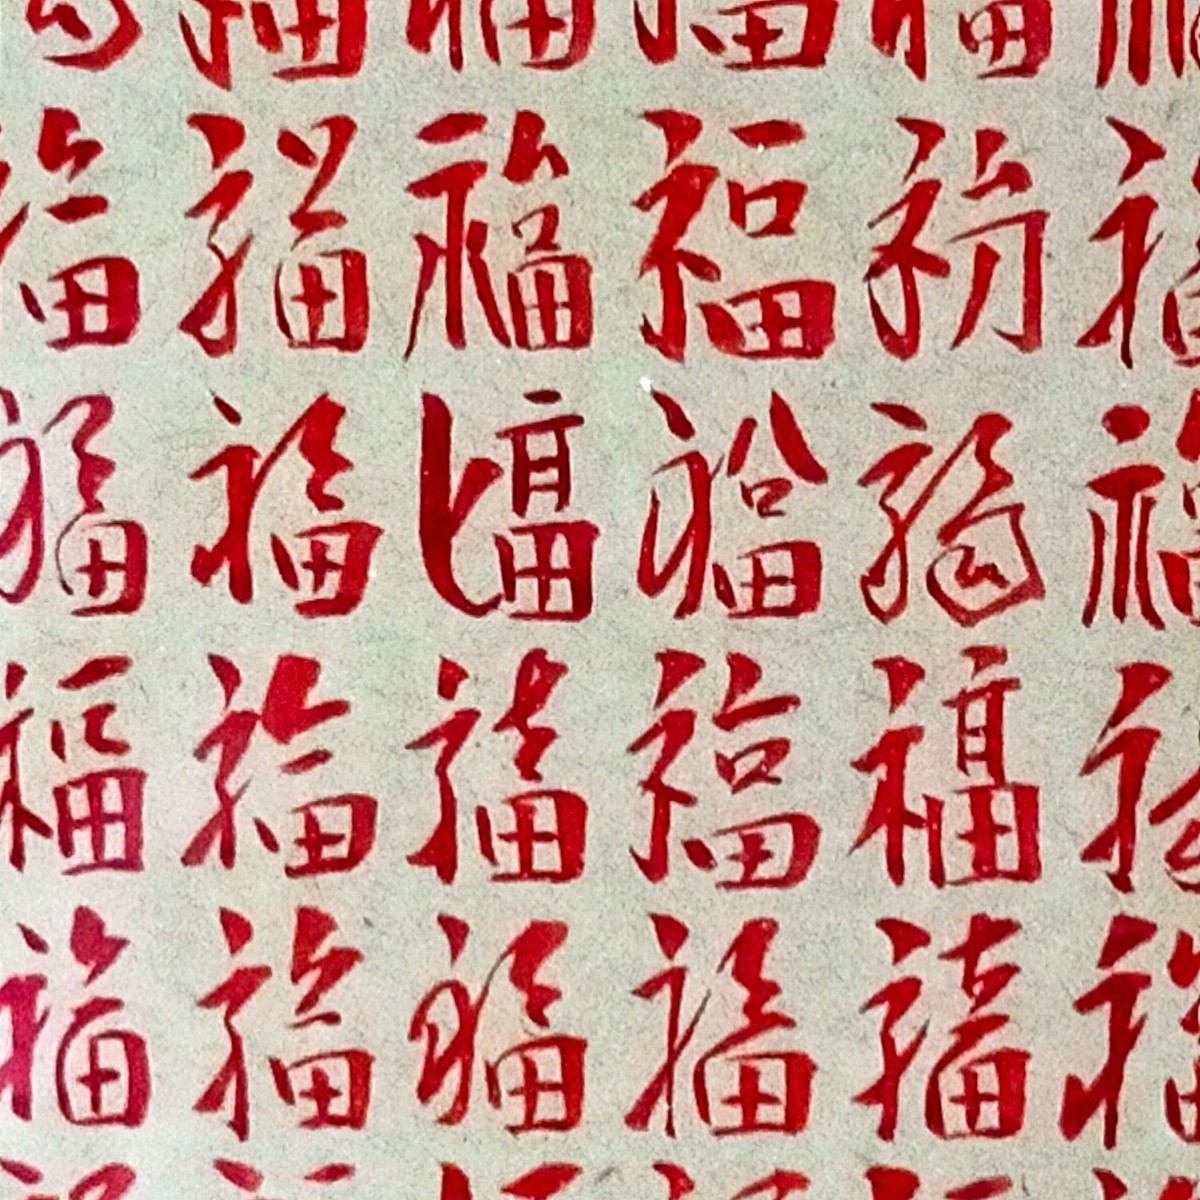 福 福 福 福 福 福
福 福 福 福 福 福
福 福 福 福 福 福
福 福 福 福 福 福
福 福 福 福 福 福